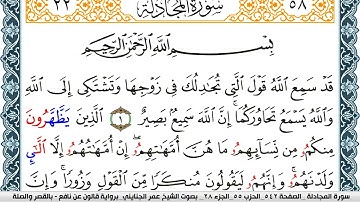 ٢٢ سُورَةُ المُجَادِلَة ٥٨
بِسْمِ اللَّهِ الرَّحْمَٰنِ الرَّحِيمِ
قَدْ سَمِعَ اللَّهُ قَوْلَ الَّتِي تُجَادِلُكَ فِي زَوْجِهَا وَتَشْتَكِي إِلَى اللَّهِ
وَاللَّهُ يَسْمَعُ تَحَاوُرَكُمَا إِنَّ اللَّهَ سَمِيعٌ بَصِيرٌ ١ الَّذِينَ يَظَّهَّرُونَ
مِنكُمْ مِن نِّسَائِهِمْ مَا هُنَّ أُمَّهَاتِهِمْ إِنْ أُمَّهَاتُهُمْ إِلَّا الَّٰئِ
وَلَدْنَهُمْ وَإِنَّهُمْ لَيَقُولُونَ مُنكَرًا مِّنَ الْقَوْلِ وَزُورًا وَإِنَّ
سورة المجادلة _ الصفحة ٥٤٢ _ الحزب ٥٥ _ الجزء ٢٨ _ بصوت الشيخ عمر الجنايني _ برواية قالون عن نافع - بالقصر والصلة